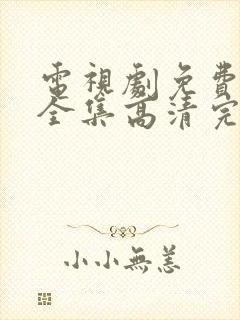 電視劇免費
全集高清完
小小無恙